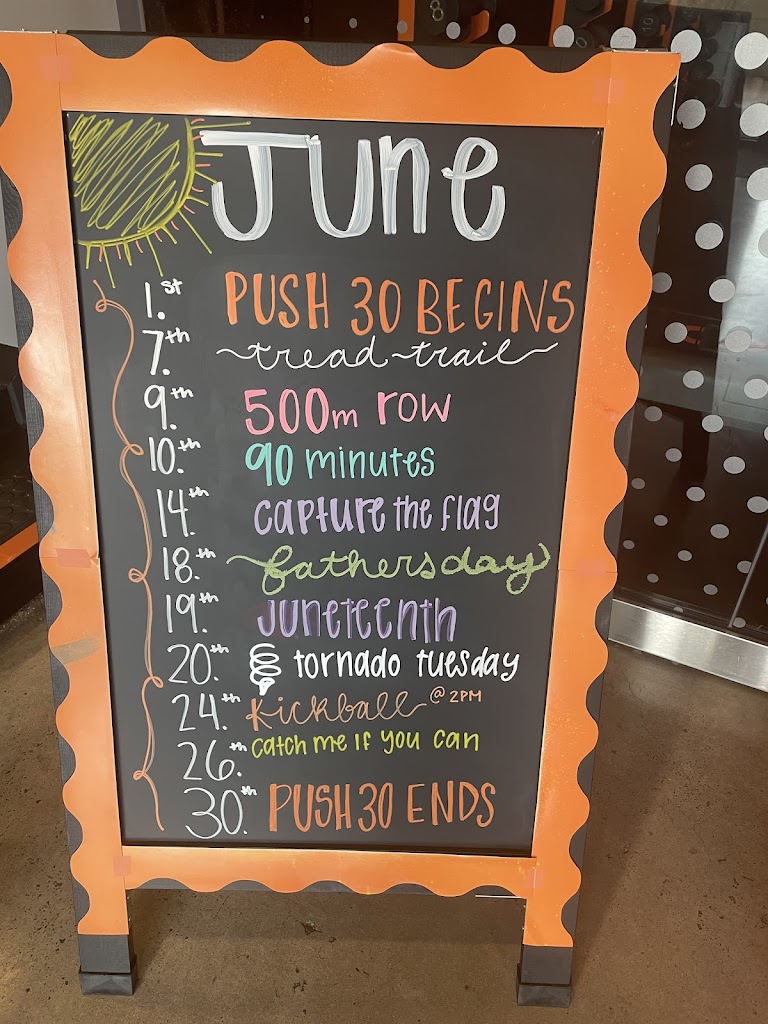 June
1.st PUSH 30 BEGINS
7.th ~tread~trail~
9.th 500m row
10.th 90 minutes
14.th capture the flag
18.th fathersday
19.th Juneteenth
20.th tornado tuesday
24.th Kickball @ 2PM
26.th catch me if you can
30.th PUSH 30 ENDS